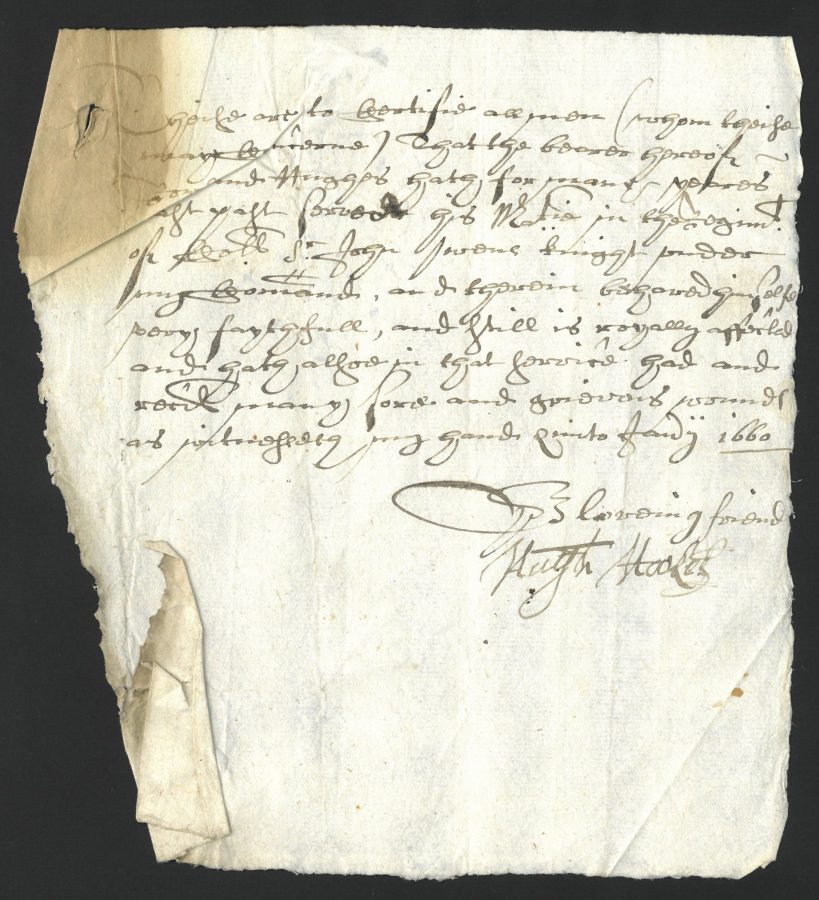 Theise are to Certifie all men (whom theise
may Concerne) That the bearer hereof
and Hughes hath for many yeares
last past served his Ma:tie in the regim:t
of Coll S:r John Owens knight under
my Comand, and therein behaved himselfe
very faythfull, and still is royally affected
and hath alsoe in that service had and
rec'd many sore and grievous wounds
as witnesseth my hand Quinto Janij 1660
Yo:r loveing friend
Hugh Hookes